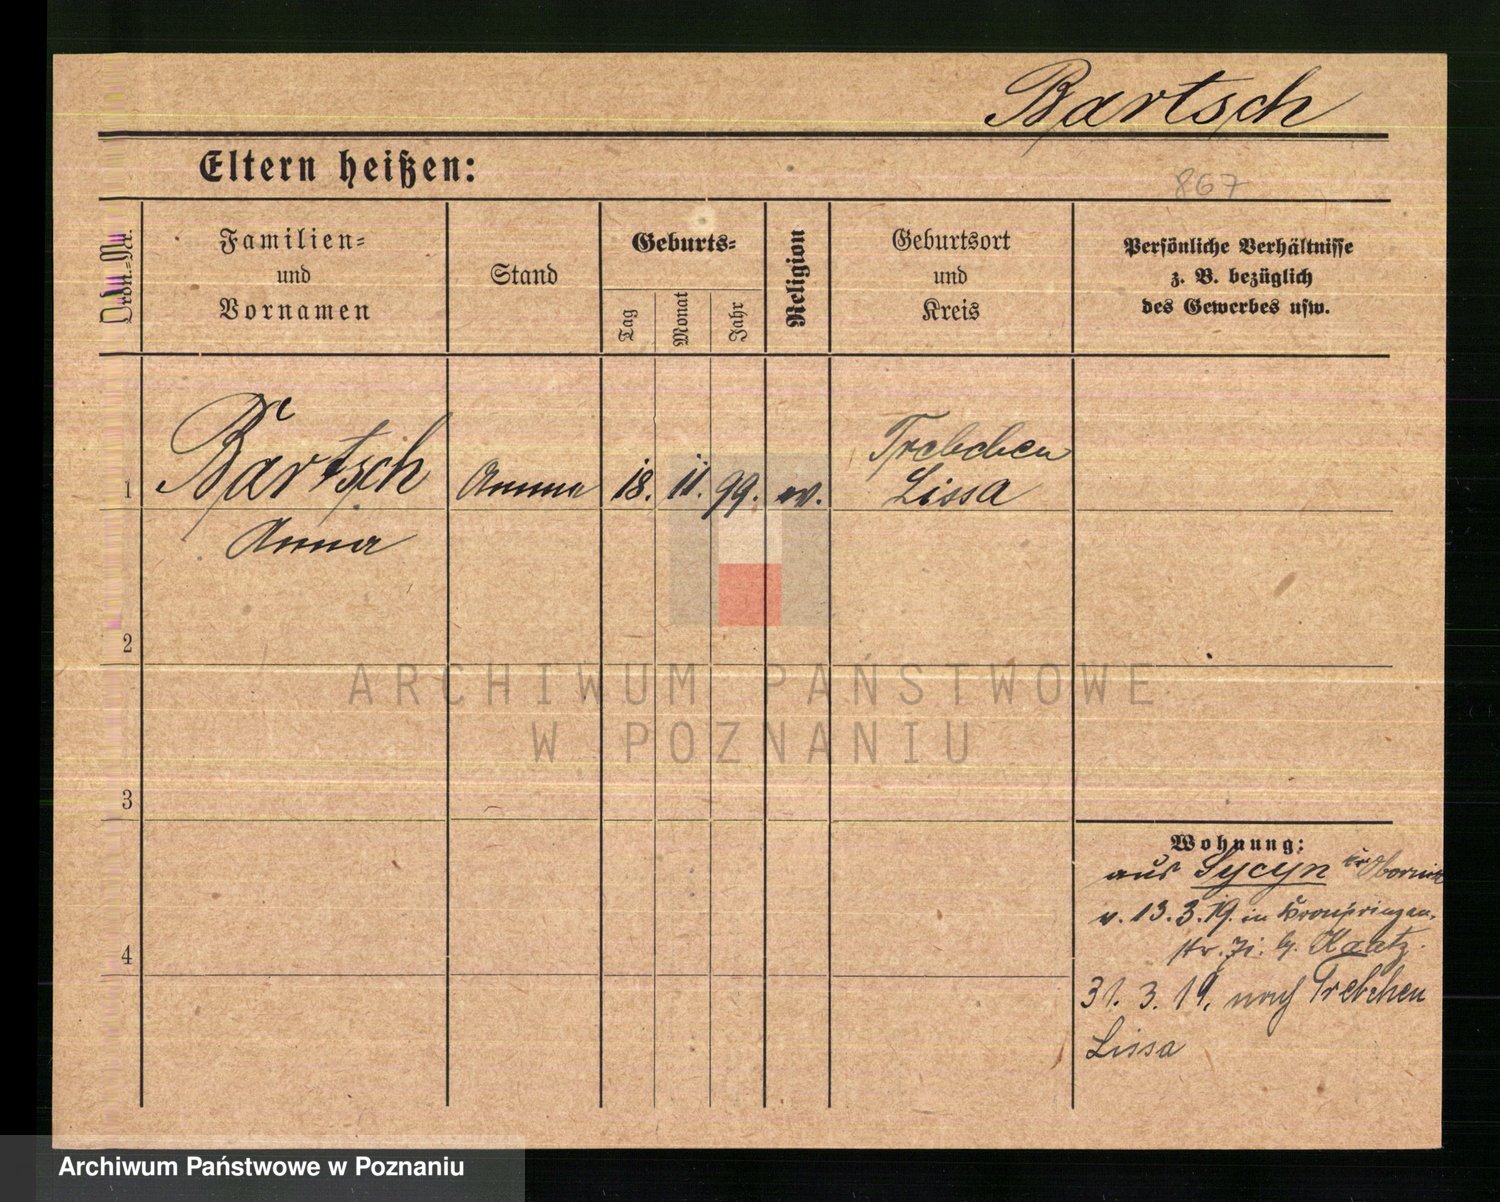 Bartsch
Eltern heißen:
867
Ordn.-Nr.
Familien-
und
Vornamen
Stand
Geburts-
Tag
Monat
Jahr
Religion
Geburtsort
und
Kreis
Persönliche Verhältnisse
z. B. bezüglich
des Gewerbes usw.
1
Bartsch
Anna
Amme
18. 11. 99. ev.
Trebchen
Lissa
2
ARCHIWUM PAŃSTWOWE
W POZNANIU
3
4
Wohnung:
aus Sycyn Kr. Obornik
v. 13. 3. 19. in Kronprinzen-
str. b. Kaatz.
31. 3. 19. nach Trebchen
Lissa
Archiwum Państwowe w Poznaniu